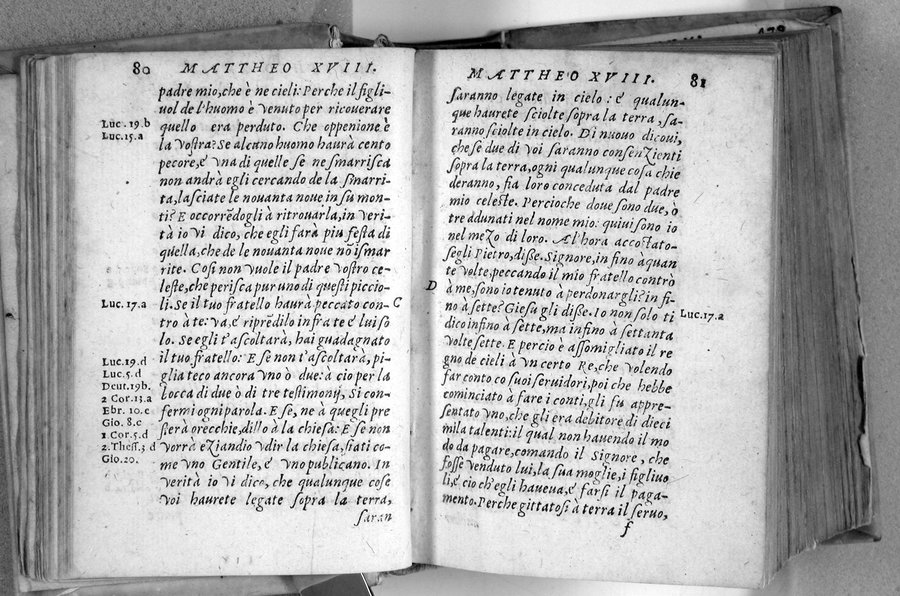 80 MATTHEO XVIII.
padre mio, che è ne cieli: Perche il figli-
uol de l'huomo è venuto per ricouerare
Luc. 19.b
quello era perduto. Che oppenione è
Luc. 15.a
la vostra? Se alcano huomo haurà cento
pecore, e' vna di quelle se ne smarrisca
non andrà egli cercando de la smarri-
ta, lasciate le nouanta noue in su mon-
ti? E occorrẽdogli à ritrouarla, in veri-
tà io vi dico, che egli farà piu festa di
quella, che de le nouanta noue nõ ismar
rite. Cosi non vuole il padre vostro ce-
leste, che perisca pur uno di questi piccio-
Luc. 17.a
li. Se il tuo fratello haurà peccato con- C
tro à te: va, e' riprẽdilo infra te e' lui so
lo. Se egli t'ascoltarà, hai guadagnato
Luc. 19.d
il tuo fratello: E se non t'ascoltarà, pi-
Luc. 5.d
glia teco ancora vno ò due: à cio per la
Deut. 19b.
bocca di due ò di tre testimonij, Si con-
2 Cor. 13.a
fermi ogni parola. E se, ne à quegli pre
Ebr. 10.e
sterà orecchie, dillo à la chiesa: E se non
Gio. 8.c
1 Cor. 5.d
vorrà eziandio vdir la chiesa, siati co-
2. Thess. 3 d
me vno Gentile, e' vno publicano. In
Gio. 20.
verità io vi dico, che qualunque cose
voi haurete legate sopra la terra,
saran
MATTHEO XVIII. 81
saranno legate in cielo: e' qualun-
que haurete sciolte sopra la terra, sa-
ranno sciolte in cielo. Di nuouo dicoui,
che se due di voi saranno consenzienti
sopra la terra, ogni qualunque cosa chie
deranno, fia loro conceduta dal padre
mio celeste. Percioche doue sono due, ò
tre adunati nel nome mio: quiui sono io
nel mezo di loro. Al'hora accostato-
segli Pietro, disse. Signore, in fino à quan
te volte, peccando il mio fratello contrò
D à me, sono io tenuto à perdonargli? in fi-
no à sette? Giesu gli disse. Io non solo ti
Luc. 17.a
dico infino à sette, ma infino à settanta
volte sette. E percio è assomigliato il re
gno de cieli à vn certo Re, che volendo
far conto co suoi seruidori, poi che hebbe
cominciato à fare i conti, gli fu appre-
sentato vno, che gli era debitore di dieci
mila talenti: il qual non hauendo il mo
do da pagare, comando il Signore, che
fosse venduto lui, la sua moglie, i figliuo
li, e' cio ch'egli haueua, e' farsi il paga-
mento. Perche gittatosi à terra il seruo,
f